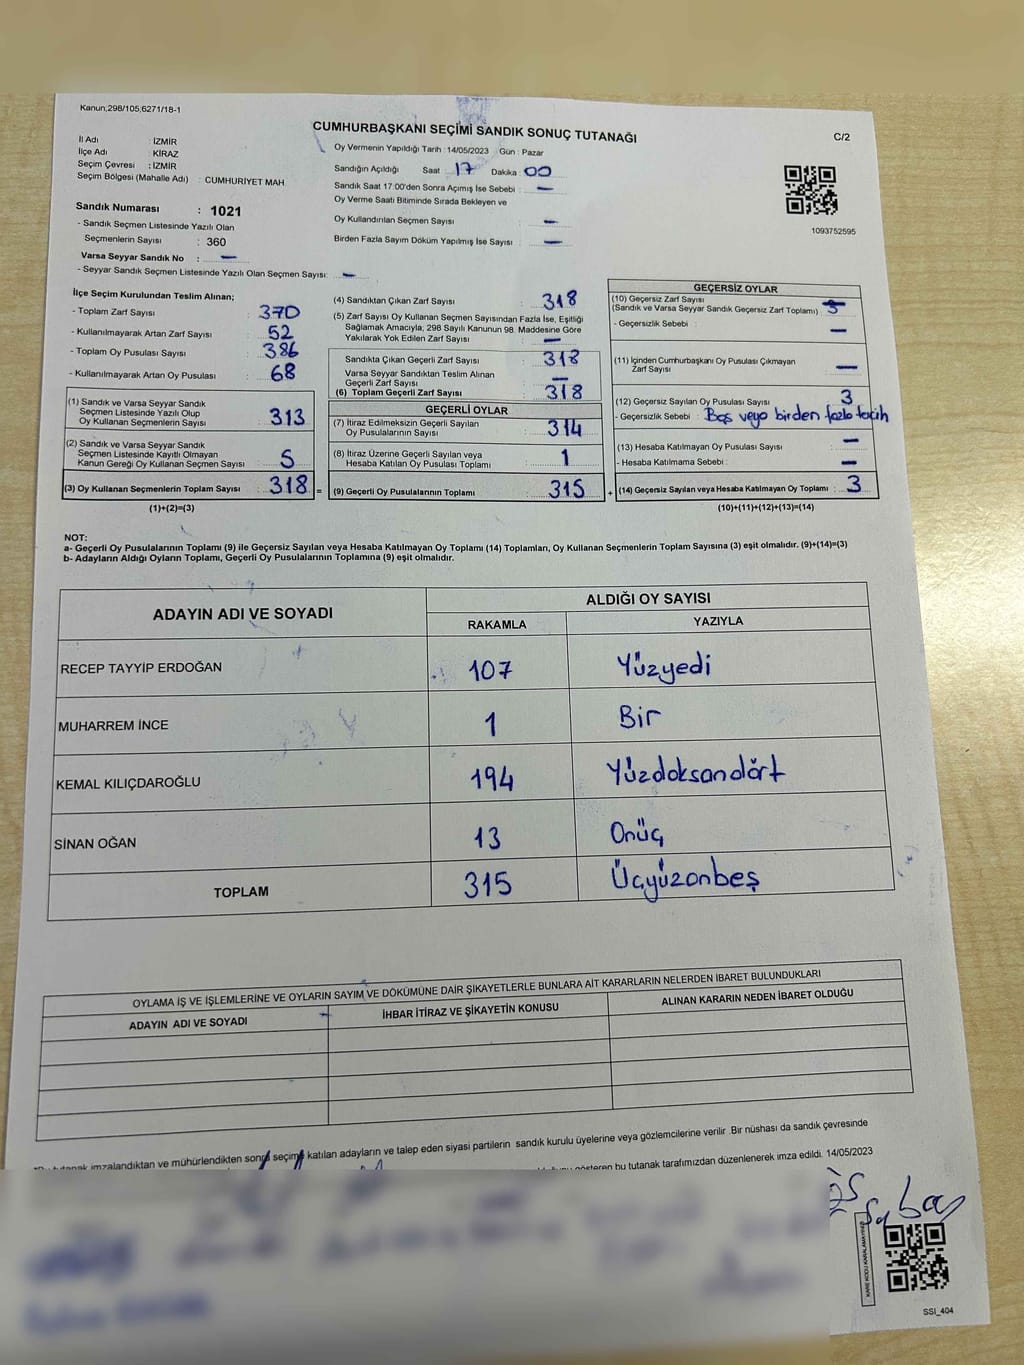 Kanun,298/105,6271/18-1
CUMHURBAŞKANI SEÇİMİ SANDIK SONUÇ TUTANAĞI
C/2
İl Adı : İZMİR
İlçe Adı : KİRAZ
Seçim Çevresi : İZMİR
Seçim Bölgesi (Mahalle Adı) : CUMHURİYET MAH.
Sandık Numarası : 1021
- Sandık Seçmen Listesinde Yazılı Olan
Seçmenlerin Sayısı : 360
Varsa Seyyar Sandık No : —
- Seyyar Sandık Seçmen Listesinde Yazılı Olan Seçmen Sayısı: —
Oy Vermenin Yapıldığı Tarih : 14/05/2023 Gün : Pazar
Sandığın Açıldığı Saat 17 Dakika 00
Sandık Saat 17:00'den Sonra Açımış İse Sebebi : —
Oy Verme Saati Bitiminde Sırada Bekleyen ve
Oy Kullandırılan Seçmen Sayısı : —
Birden Fazla Sayım Döküm Yapılmış İse Sayısı : —
1093752595
İlçe Seçim Kurulundan Teslim Alınan;
- Toplam Zarf Sayısı : 370
- Kullanılmayarak Artan Zarf Sayısı : 52
- Toplam Oy Pusulası Sayısı : 386
- Kullanılmayarak Artan Oy Pusulası : 68
(1) Sandık ve Varsa Seyyar Sandık
Seçmen Listesinde Yazılı Olup
Oy Kullanan Seçmenlerin Sayısı : 313
(2) Sandık ve Varsa Seyyar Sandık
Seçmen Listesinde Kayıtlı Olmayan
Kanun Gereği Oy Kullanan Seçmen Sayısı : 5
(3) Oy Kullanan Seçmenlerin Toplam Sayısı : 318 =
(1)+(2)=(3)
(4) Sandıktan Çıkan Zarf Sayısı : 318
(5) Zarf Sayısı Oy Kullanan Seçmen Sayısından Fazla İse, Eşitliği
Sağlamak Amacıyla, 298 Sayılı Kanunun 98. Maddesine Göre
Yakılarak Yok Edilen Zarf Sayısı : —
Sandıkta Çıkan Geçerli Zarf Sayısı : 318
Varsa Seyyar Sandıktan Teslim Alınan
Geçerli Zarf Sayısı : —
(6) Toplam Geçerli Zarf Sayısı : 318
GEÇERLİ OYLAR
(7) İtiraz Edilmeksizin Geçerli Sayılan
Oy Pusulalarının Sayısı : 314
(8) İtiraz Üzerine Geçerli Sayılan veya
Hesaba Katılan Oy Pusulası Toplamı : 1
(9) Geçerli Oy Pusulalarının Toplamı : 315 +
GEÇERSİZ OYLAR
(10) Geçersiz Zarf Sayısı
(Sandık ve Varsa Seyyar Sandık Geçersiz Zarf Toplamı) :
- Geçersizlik Sebebi : —
(11) İçinden Cumhurbaşkanı Oy Pusulası Çıkmayan
Zarf Sayısı : —
(12) Geçersiz Sayılan Oy Pusulası Sayısı : 3
- Geçersizlik Sebebi : Boş veya birden fazla tercih
(13) Hesaba Katılmayan Oy Pusulası Sayısı : —
- Hesaba Katılmama Sebebi : —
(14) Geçersiz Sayılan veya Hesaba Katılmayan Oy Toplamı : 3
(10)+(11)+(12)+(13)=(14)
NOT:
a- Geçerli Oy Pusulalarının Toplamı (9) ile Geçersiz Sayılan veya Hesaba Katılmayan Oy Toplamı (14) Toplamları, Oy Kullanan Seçmenlerin Toplam Sayısına (3) eşit olmalıdır. (9)+(14)=(3)
b- Adayların Aldığı Oyların Toplamı, Geçerli Oy Pusulalarının Toplamına (9) eşit olmalıdır.
ADAYIN ADI VE SOYADI
ALDIĞI OY SAYISI
RAKAMLA YAZIYLA
RECEP TAYYİP ERDOĞAN 107 Yüzyedi
MUHARREM İNCE 1 Bir
KEMAL KILIÇDAROĞLU 194 Yüzdoksandört
SİNAN OĞAN 13 Onüç
TOPLAM 315 Üçyüzonbeş
OYLAMA İŞ VE İŞLEMLERİNE VE OYLARIN SAYIM VE DÖKÜMÜNE DAİR ŞİKAYETLERLE BUNLARA AİT KARARLARIN NELERDEN İBARET BULUNDUKLARI
ADAYIN ADI VE SOYADI İHBAR İTİRAZ VE ŞİKAYETİN KONUSU ALINAN KARARIN NEDEN İBARET OLDUĞU
tutanak imzalandıktan ve mühürlendikten sonra seçime katılan adayların ve talep eden siyasi partilerin sandık kurulu üyelerine veya gözlemcilerine verilir. Bir nüshası da sandık çevresinde
gösteren bu tutanak tarafımızdan düzenlenerek imza edildi. 14/05/2023
KARE KODU KARALAMAYINIZ
SSI_404